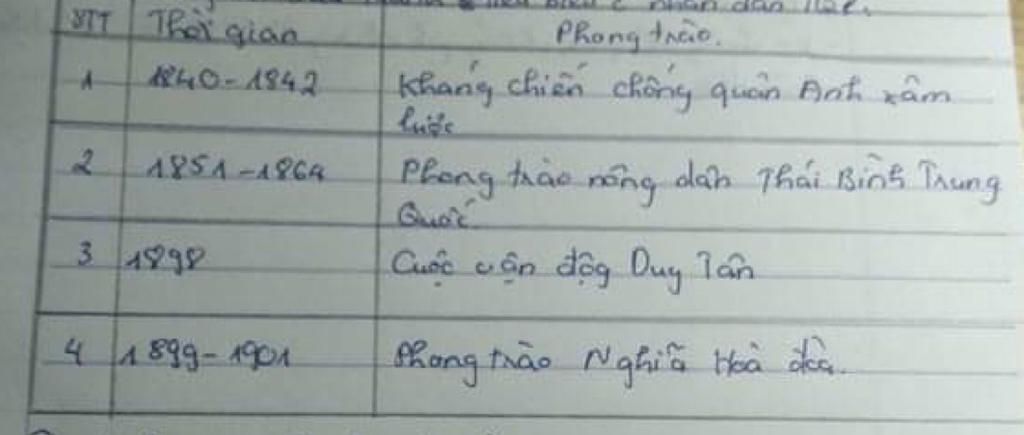 nhân dân
STT Thời gian Phong trào.
1 1840-1842 Kháng chiến chống quân Anh xâm
lược
2 1851-1864 Phong trào nông dân Thái Bình Trung
Quốc
3 1898 Cuộc vận độg Duy Tân
4 1899-1901 Phong trào Nghĩã Hoà đoà.